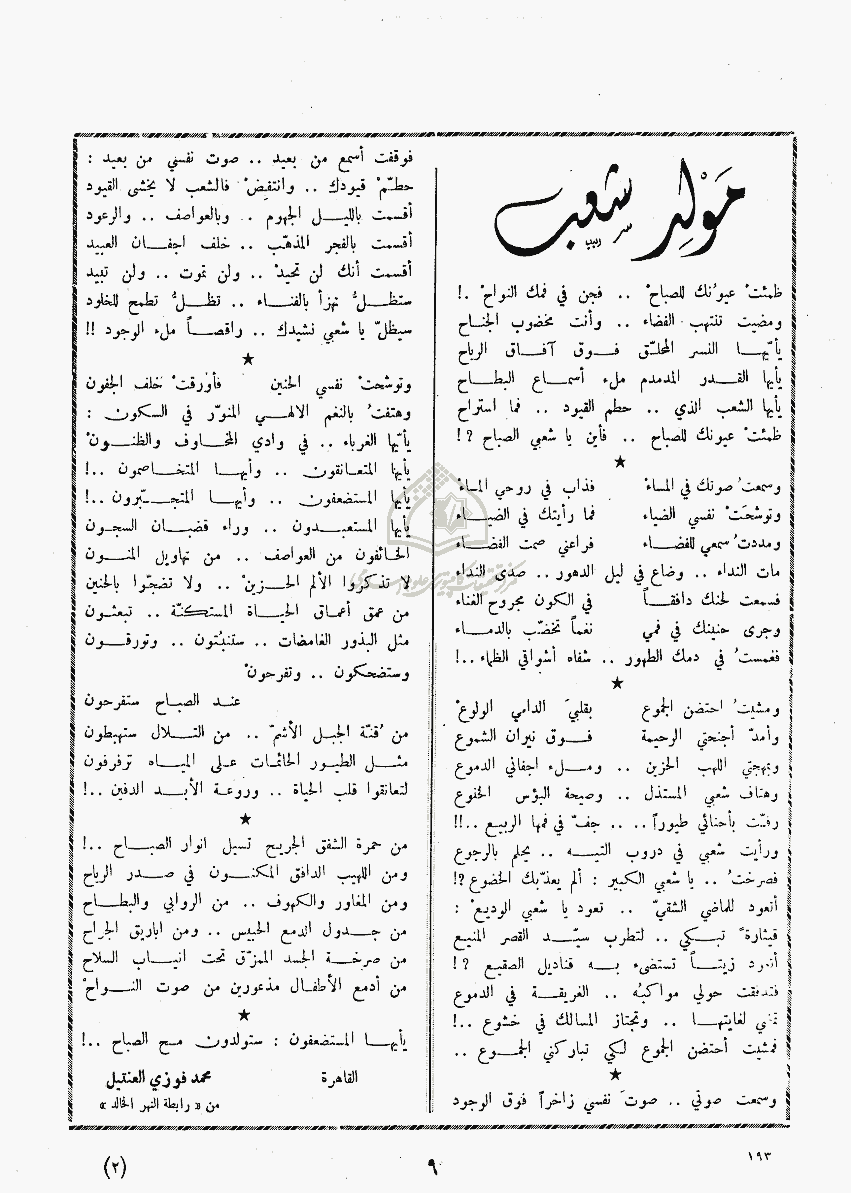 مَوْلِد شعب
ظمئتْ عيونك للصباحْ .. فجن في فمك النواحْ .!
ومضيت تنتهب الفضاء .. وأنت مخضوب الجناح
يأيها النسر المحلّق فوق آفاق الرياح
يأيها القدر المدمدم ملء أسماع البطاح
يأيها الشعب الذي .. حطم القيود .. فما استراح
ظمئتْ عيونك للصباح .. فأين يا شعبي الصباح ؟!
★
وسمعتُ صوتك في المساءْ فذاب في روحي المساءْ
وتوشحَتْ نفسي الضياء فما رأيتك في الضياء
ومددتُ سمعي للفضاء فراعني صمت الفضاء
مات النداء .. وضاع في ليل الدهور .. صدى النداء
فسمعت لحنك دافقاً في الكون مجروح الغناء
وجرى حنينك في فمي نغماً تخضّب بالدماء
فغمستُ في دمك الطهور .. شفاه أشواقي الظماء ..!
★
ومشيتُ احتضن الجموع بقلبيَ الدامي الولوعْ
وأمدّ أجنحتي الرحيمة فوق نيران الشموع
وبهجتي اللهب الحزين .. وملء اجفاني الدموع
وهتاف شعبي المستذل .. وصيحة البؤس الخنوع
رفّت بأحنائي طيوراً .. .. جفّ في فمها الربيع ..!!
ورأيت شعبي في دروب التيه .. يحلم بالرجوع
فصرختُ .. يا شعبي الكبير : ألم يعذّبك الخضوع ؟!
أتعود للماضي الشقيّ .. تعود يا شعبي الوديعْ :
قيثارةً تبكي .. لتطرب سيّد القصر المنيع
زيتاً تستضىء به قناديل الصقيع ؟!
فتدفقت حولي مواكبُه .. الغريقة في الدموع
تمضي لغايتها .. وتجتاز المسالك في خشوع ..!
فمشيت أحتضن الجموع لكي تباركني الجموع ..
★
وسمعت صوتي .. صوتَ نفسي زاخراً فوق الوجود
فوقفت أسمع من بعيد .. صوت نفسي من بعيد :
حطّمْ قيودك .. وانتفضْ فالشعب لا يخشى القيود
أقسمت بالليل الجهوم .. وبالعواصف .. والرعود
أقسمت بالفجر المذهّب .. خلف اجفان العبيد
أقسمت أنك لن تحيدْ .. ولن تموت .. ولن تبيد
ستظلُّ تهزأ بالفناء .. تظلُّ تطمح للخلود
سيظلّ يا شعبي نشيدك .. راقصاً ملء الوجود !!
★
وتوشحتْ نفسي الحنين فأورقتْ خلف الجفون
وهتفتُ بالنغم الالهي المنوّر في السكون :
يأيّها الغرباء .. في وادي المخاوف والظنونْ
يأيها المتعانقون .. وأيها المتخاصمون ..!
يأيها المستضعفون .. وأيها المتجبّرون ..!
يأيها المستعبدون .. وراء قضبان السجون
الخائفون من العواصف .. من تهاويل المنون
لا تذكروا الألم الحزين .. ولا تضجّوا بالحنين
من عمق أعماق الحياة المستكنّة .. تبعثون
مثل البذور الغامضات .. ستنبُتون .. وتورقون
وستضحكون .. وتفرحونْ
عند الصباح ستفرحون
من قنّة الجبل الأشمّ .. من التلال ستهبطون
مثل الطيور الحائمات على المياه ترفرفون
لتعانقوا قلب الحياة .. وروعة الأبد الدفين ..!
★
من حمرة الشفق الجريح تسيل انوار الصباح ..!
ومن اللهيب الدافق المكنون في صدر الرياح
ومن المغاور والكهوف .. من الروابي والبطاح
من جدول الدمع الحبيس .. ومن اباريق الجراح
من صرخة الجسد الممزّق تحت انياب السلاح
من أدمع الأطفال مذعورين من صوت النواحْ
★
يأيها المستضعفون : ستولدون مع الصباح ..!
القاهرة محمد فوزي العنتيل
من « رابطة النهر الخالد »
١٩٣
٩
(٢)